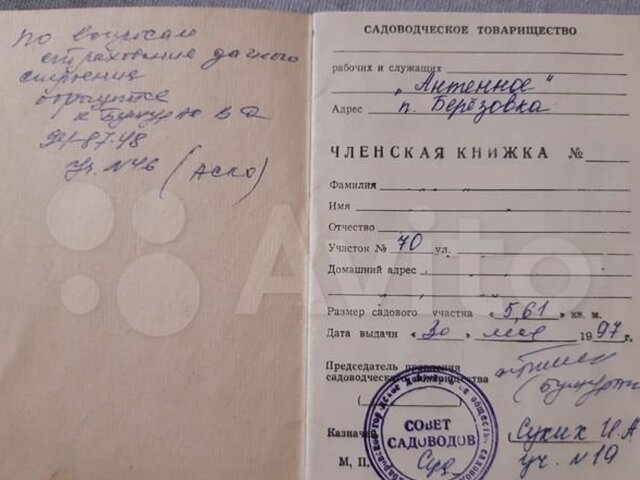 по вопросам
страхование дачного
строение
к В. А.
94-87-48
Уч. N46 (АСКО)
САДОВОДЧЕСКОЕ ТОВАРИЩЕСТВО
рабочих и служащих
„Антенное“
Адрес п. Берёзовка
ЧЛЕНСКАЯ КНИЖКА №
Фамилия
Имя
Отчество
Участок № 70 ул.
Домашний адрес
Размер садового участка «5,61» кв. м.
Дата выдачи «30» мая 1997 г.
Председатель правления
садоводческого товарищества
СОВЕТ
САДОВОДОВ
Казначей Сухих И.А
М. П. уч. N19
Avito